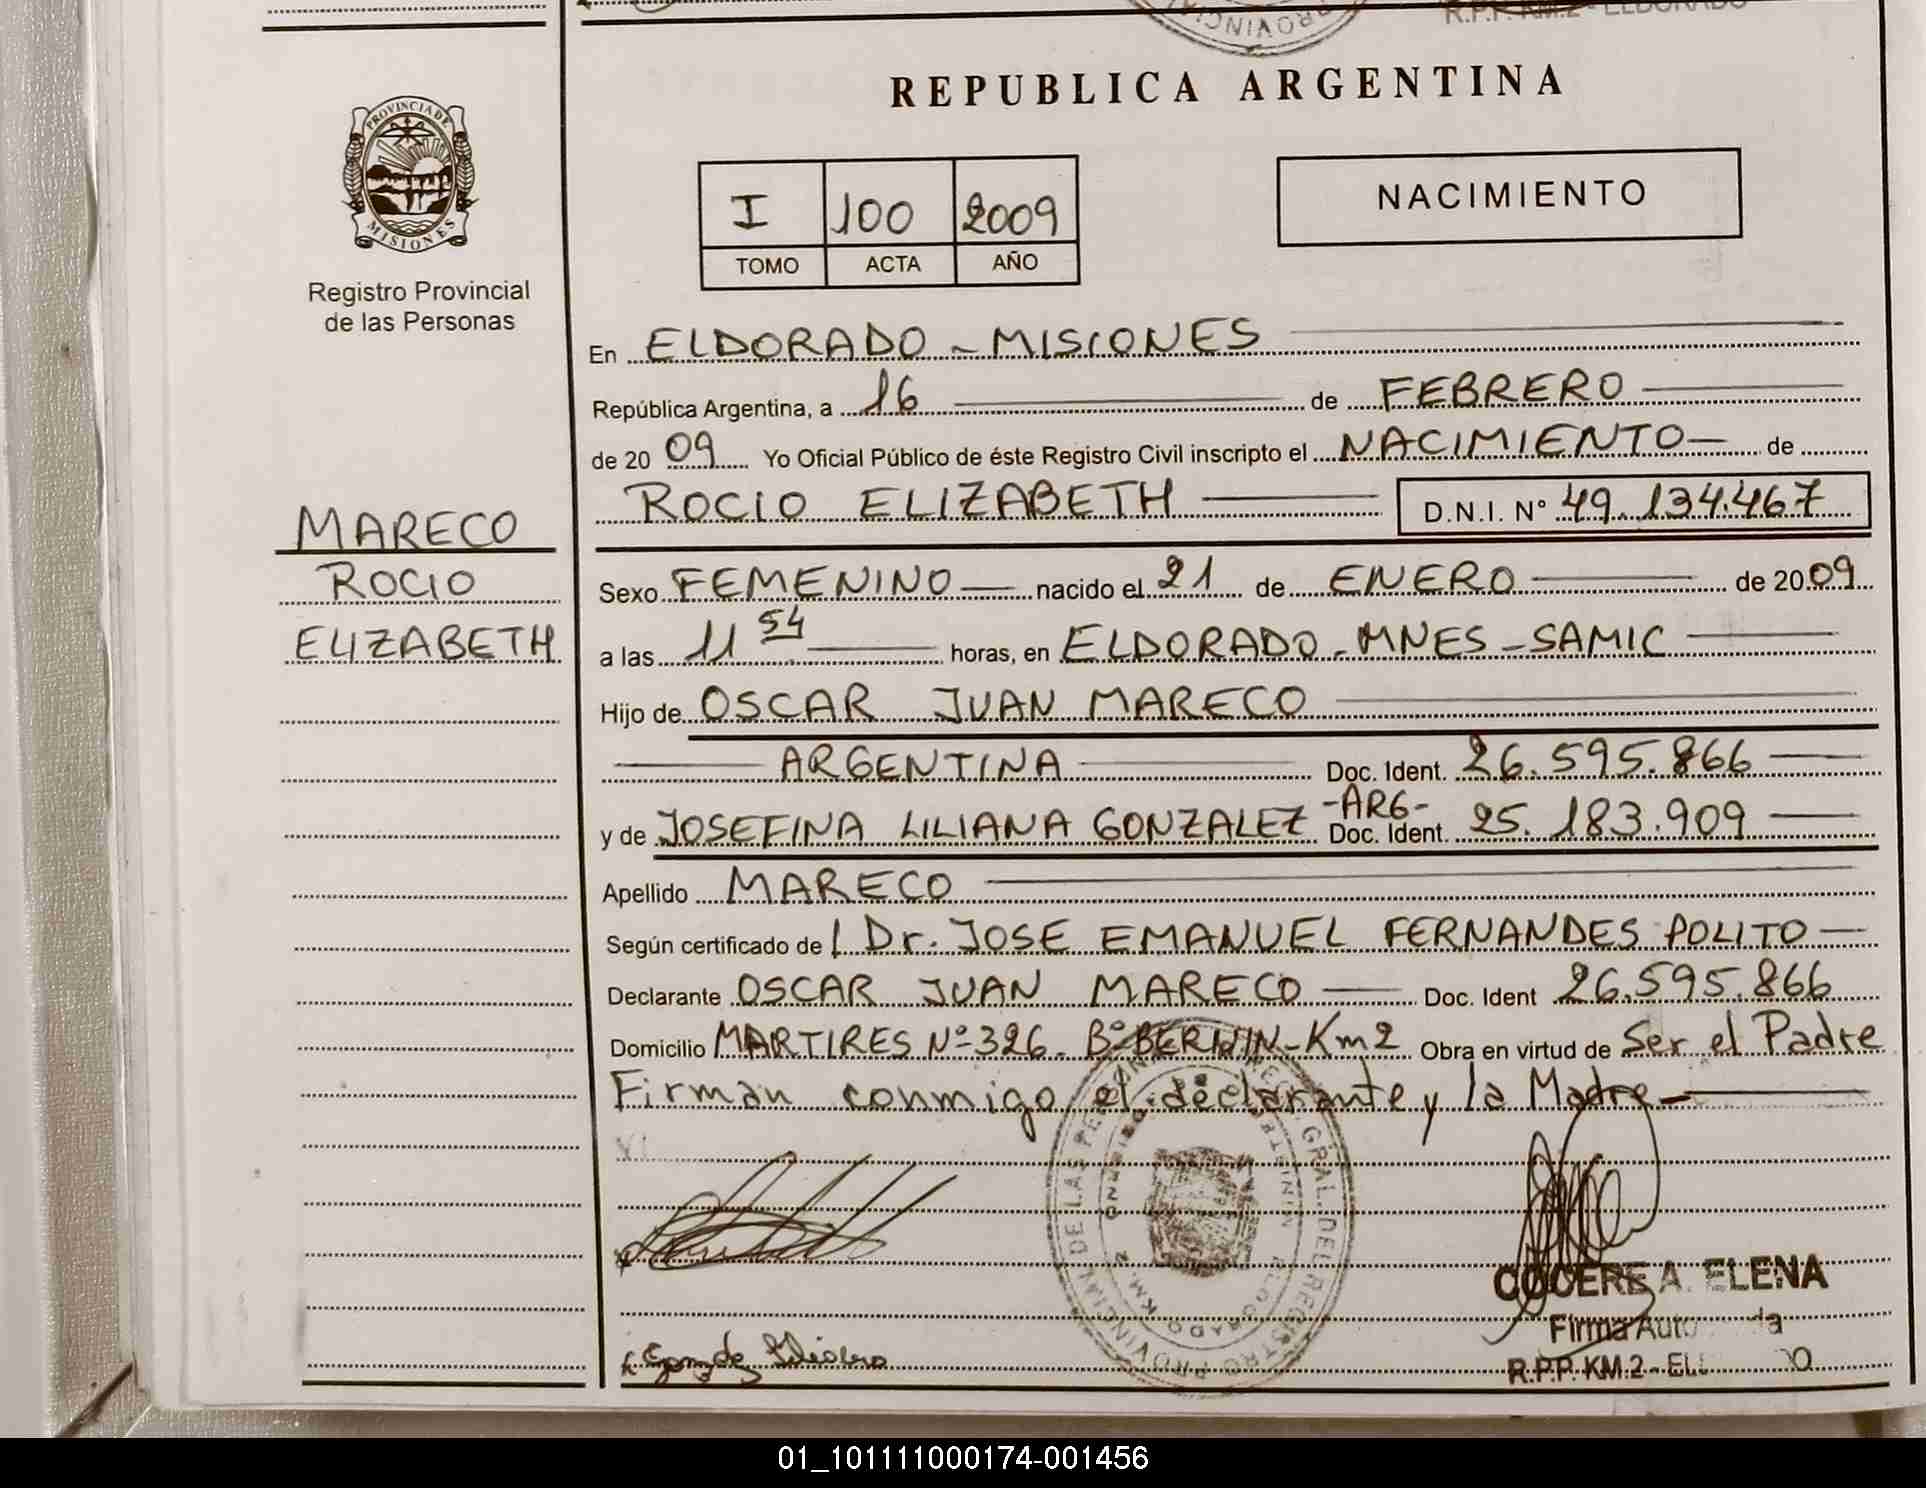 R.P.P. KM.2 - ELDORADO
REPUBLICA ARGENTINA
PROVINCIA DE
MISIONES
Registro Provincial
de las Personas
I 100 2009
TOMO ACTA AÑO
NACIMIENTO
En ELDORADO - MISIONES
República Argentina, a 16 de FEBRERO
de 2009 Yo Oficial Público de éste Registro Civil inscripto el NACIMIENTO de
ROCIO ELIZABETH D.N.I. Nº 49.134.467
MARECO
ROCIO
ELIZABETH
Sexo FEMENINO nacido el 21 de ENERO de 2009
a las 11 54 horas, en ELDORADO - MNES - SAMIC
Hijo de OSCAR JUAN MARECO
ARGENTINA Doc. Ident. 26.595.866
y de JOSEFINA LILIANA GONZALEZ -ARG- Doc. Ident. 25.183.909
Apellido MARECO
Según certificado de Dr. JOSE EMANUEL FERNANDES POLITO
Declarante OSCAR JUAN MARECO Doc. Ident 26.595.866
Domicilio MARTIRES Nº 326 - Bº BERNIN - Km 2 Obra en virtud de Ser el Padre
Firman conmigo el declarante y la Madre
COCERE A. ELENA
Firma
R.P.P. KM.2 -
01_101111000174-001456